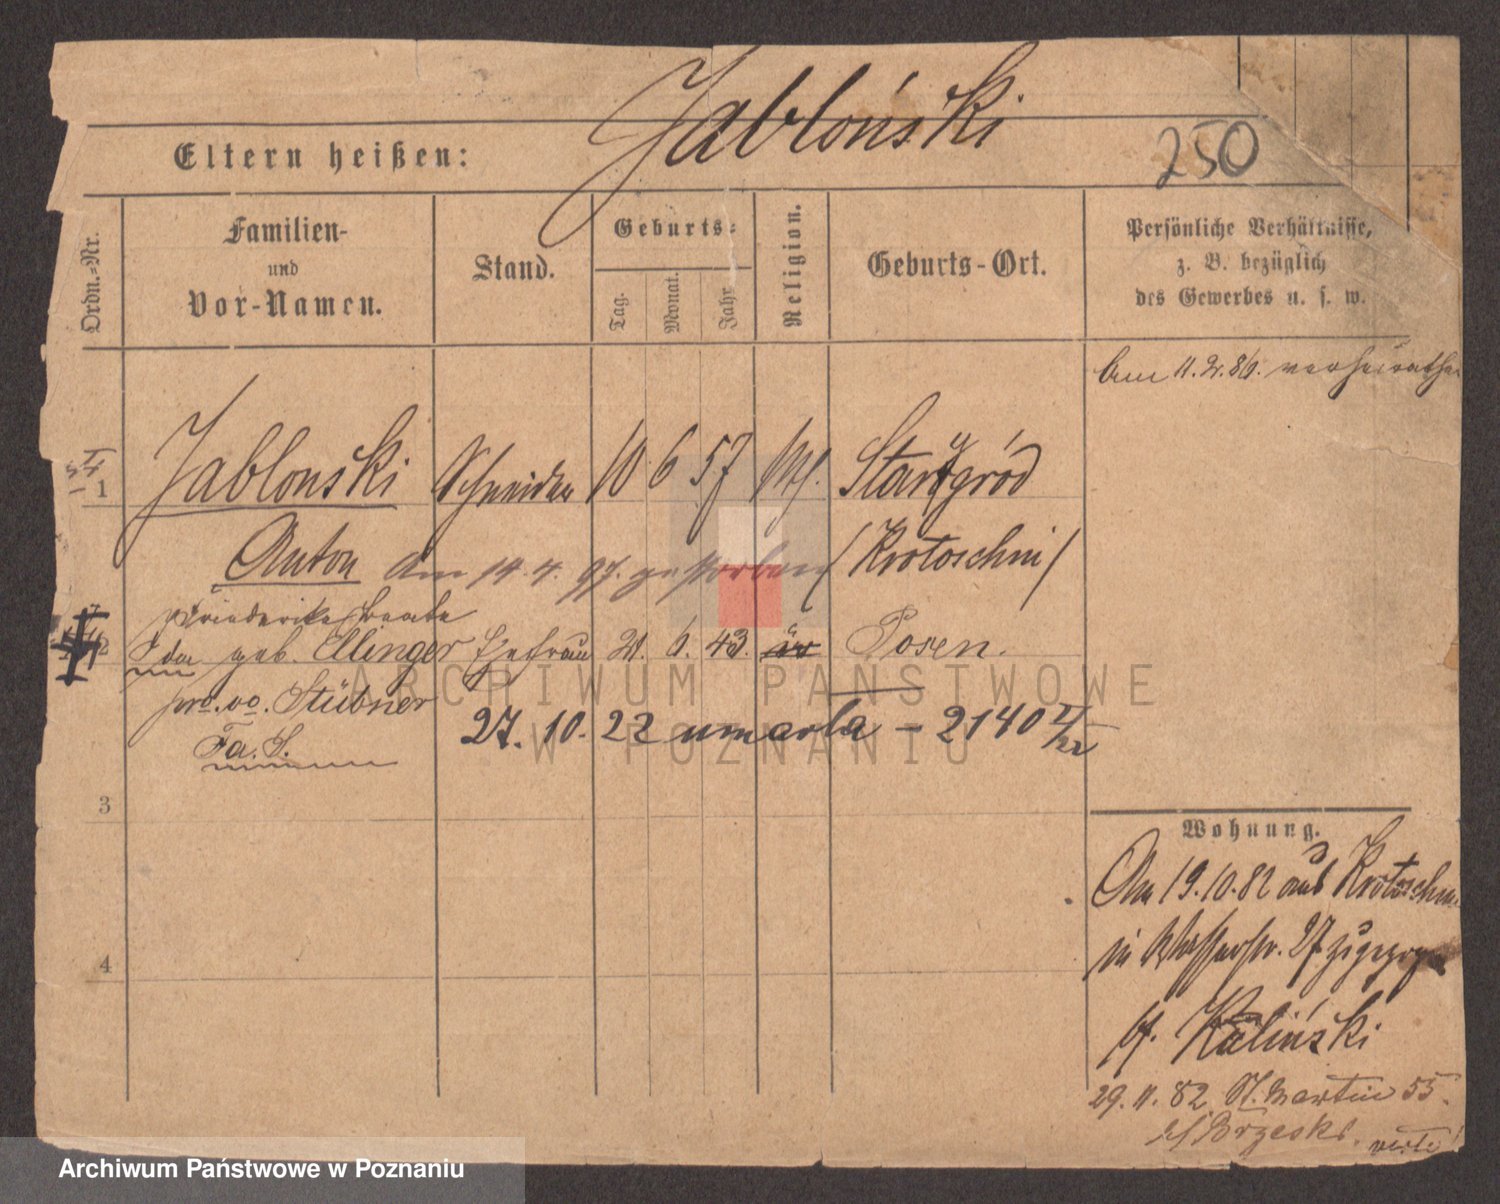 Jabłoński
250
Eltern heißen:
Ordn.-Nr.
Familien-
und
Vor-Namen.
Stand.
Geburts-
Tag.
Monat.
Jahr
Religion.
Geburts-Ort.
Persönliche Verhältnisse,
z. B. bezüglich
des Gewerbes u. s. w.
Am 11. 2. 86. verheirathet
1
Jablonski Schneider 10 6 57 kth. Starygród
Anton am 14. 4. 97. gestorben (Krotoschin)
Friederike Beate
2
Ida geb. Ellinger Ehefrau 21. 6. 43. Posen.
pro. vo. Stübner
Fa. S.
27. 10. 22 umarła - 2140
3
4
Wohnung.
Am 19. 10. 82 aus Krotoschin
in Wasserstr. 27 zugezogen
bf. Kaliński
29. 11. 82. St. Martin 55.
b/ Brzeski.
verte!
ARCHIWUM PAŃSTWOWE
W POZNANIU
Archiwum Państwowe w Poznaniu